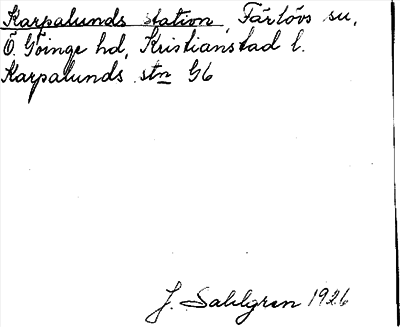 Karpalunds station, Färlövs sn,
Ö Göinge hd, Kristianstad l.
Karpalunds stn G6
J. Sahlgren 1926